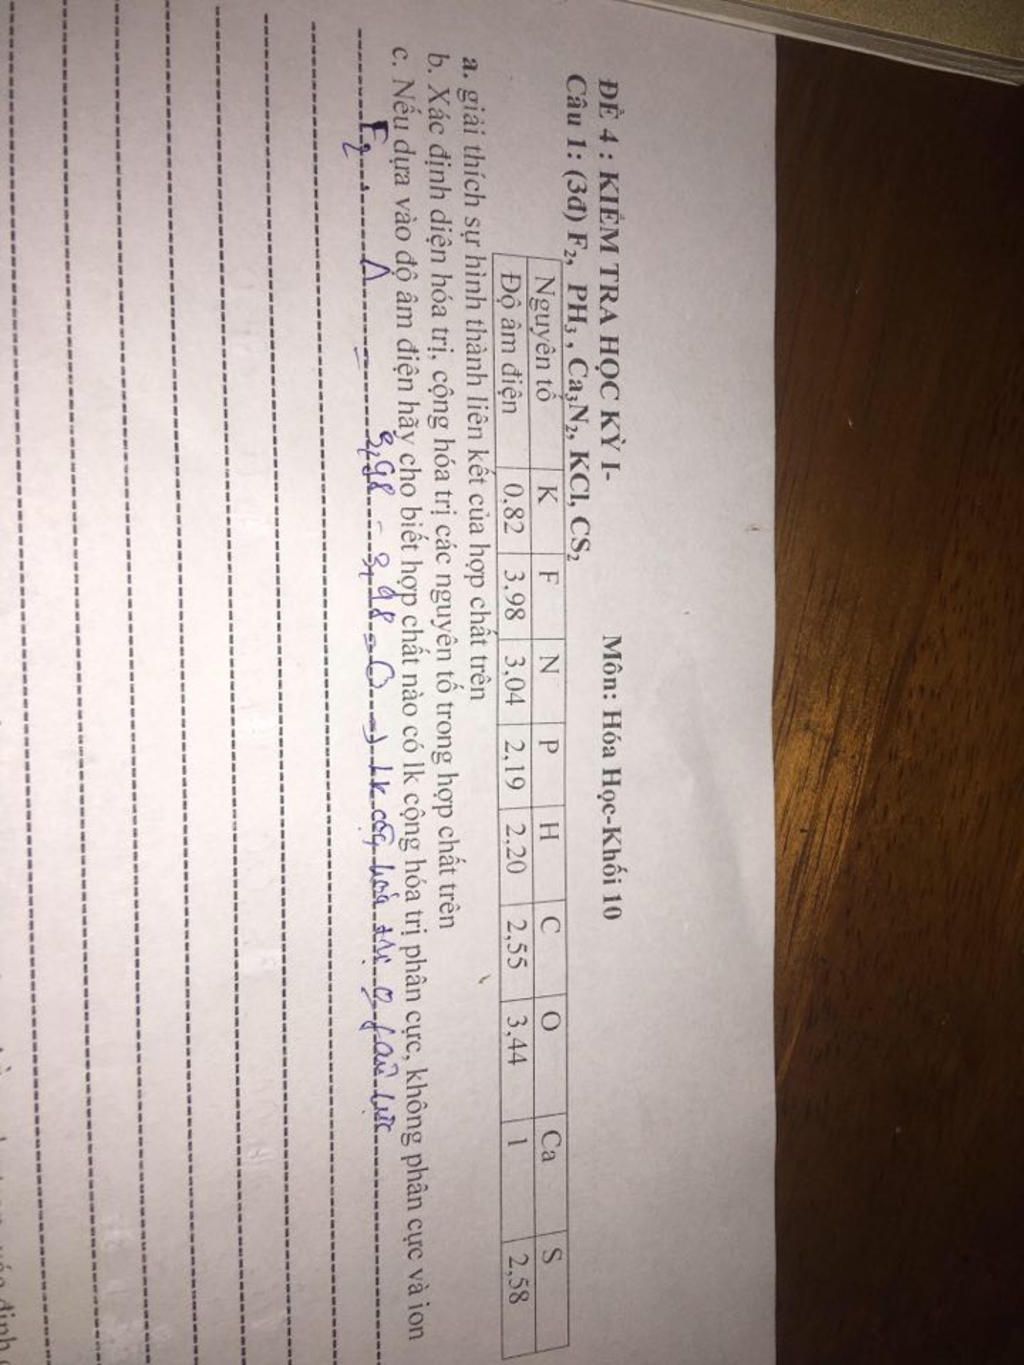 ĐỀ 4 : KIỂM TRA HỌC KỲ I- Môn: Hóa Học-Khối 10
Câu 1: (3đ) F₂, PH₃, Ca₃N₂, KCl, CS₂
Nguyên tố K F N P H C O Ca S
Độ âm điện 0,82 3,98 3,04 2,19 2,20 2,55 3,44 1 2,58
a. giải thích sự hình thành liên kết của hợp chất trên
b. Xác định diện hóa trị, cộng hóa trị các nguyên tố trong hợp chất trên
c. Nếu dựa vào độ âm điện hãy cho biết hợp chất nào có lk cộng hóa trị phân cực, không phân cực và ion
F₂ : Δ = 3,98 - 3,98 = 0 → lk cộng hoá trị